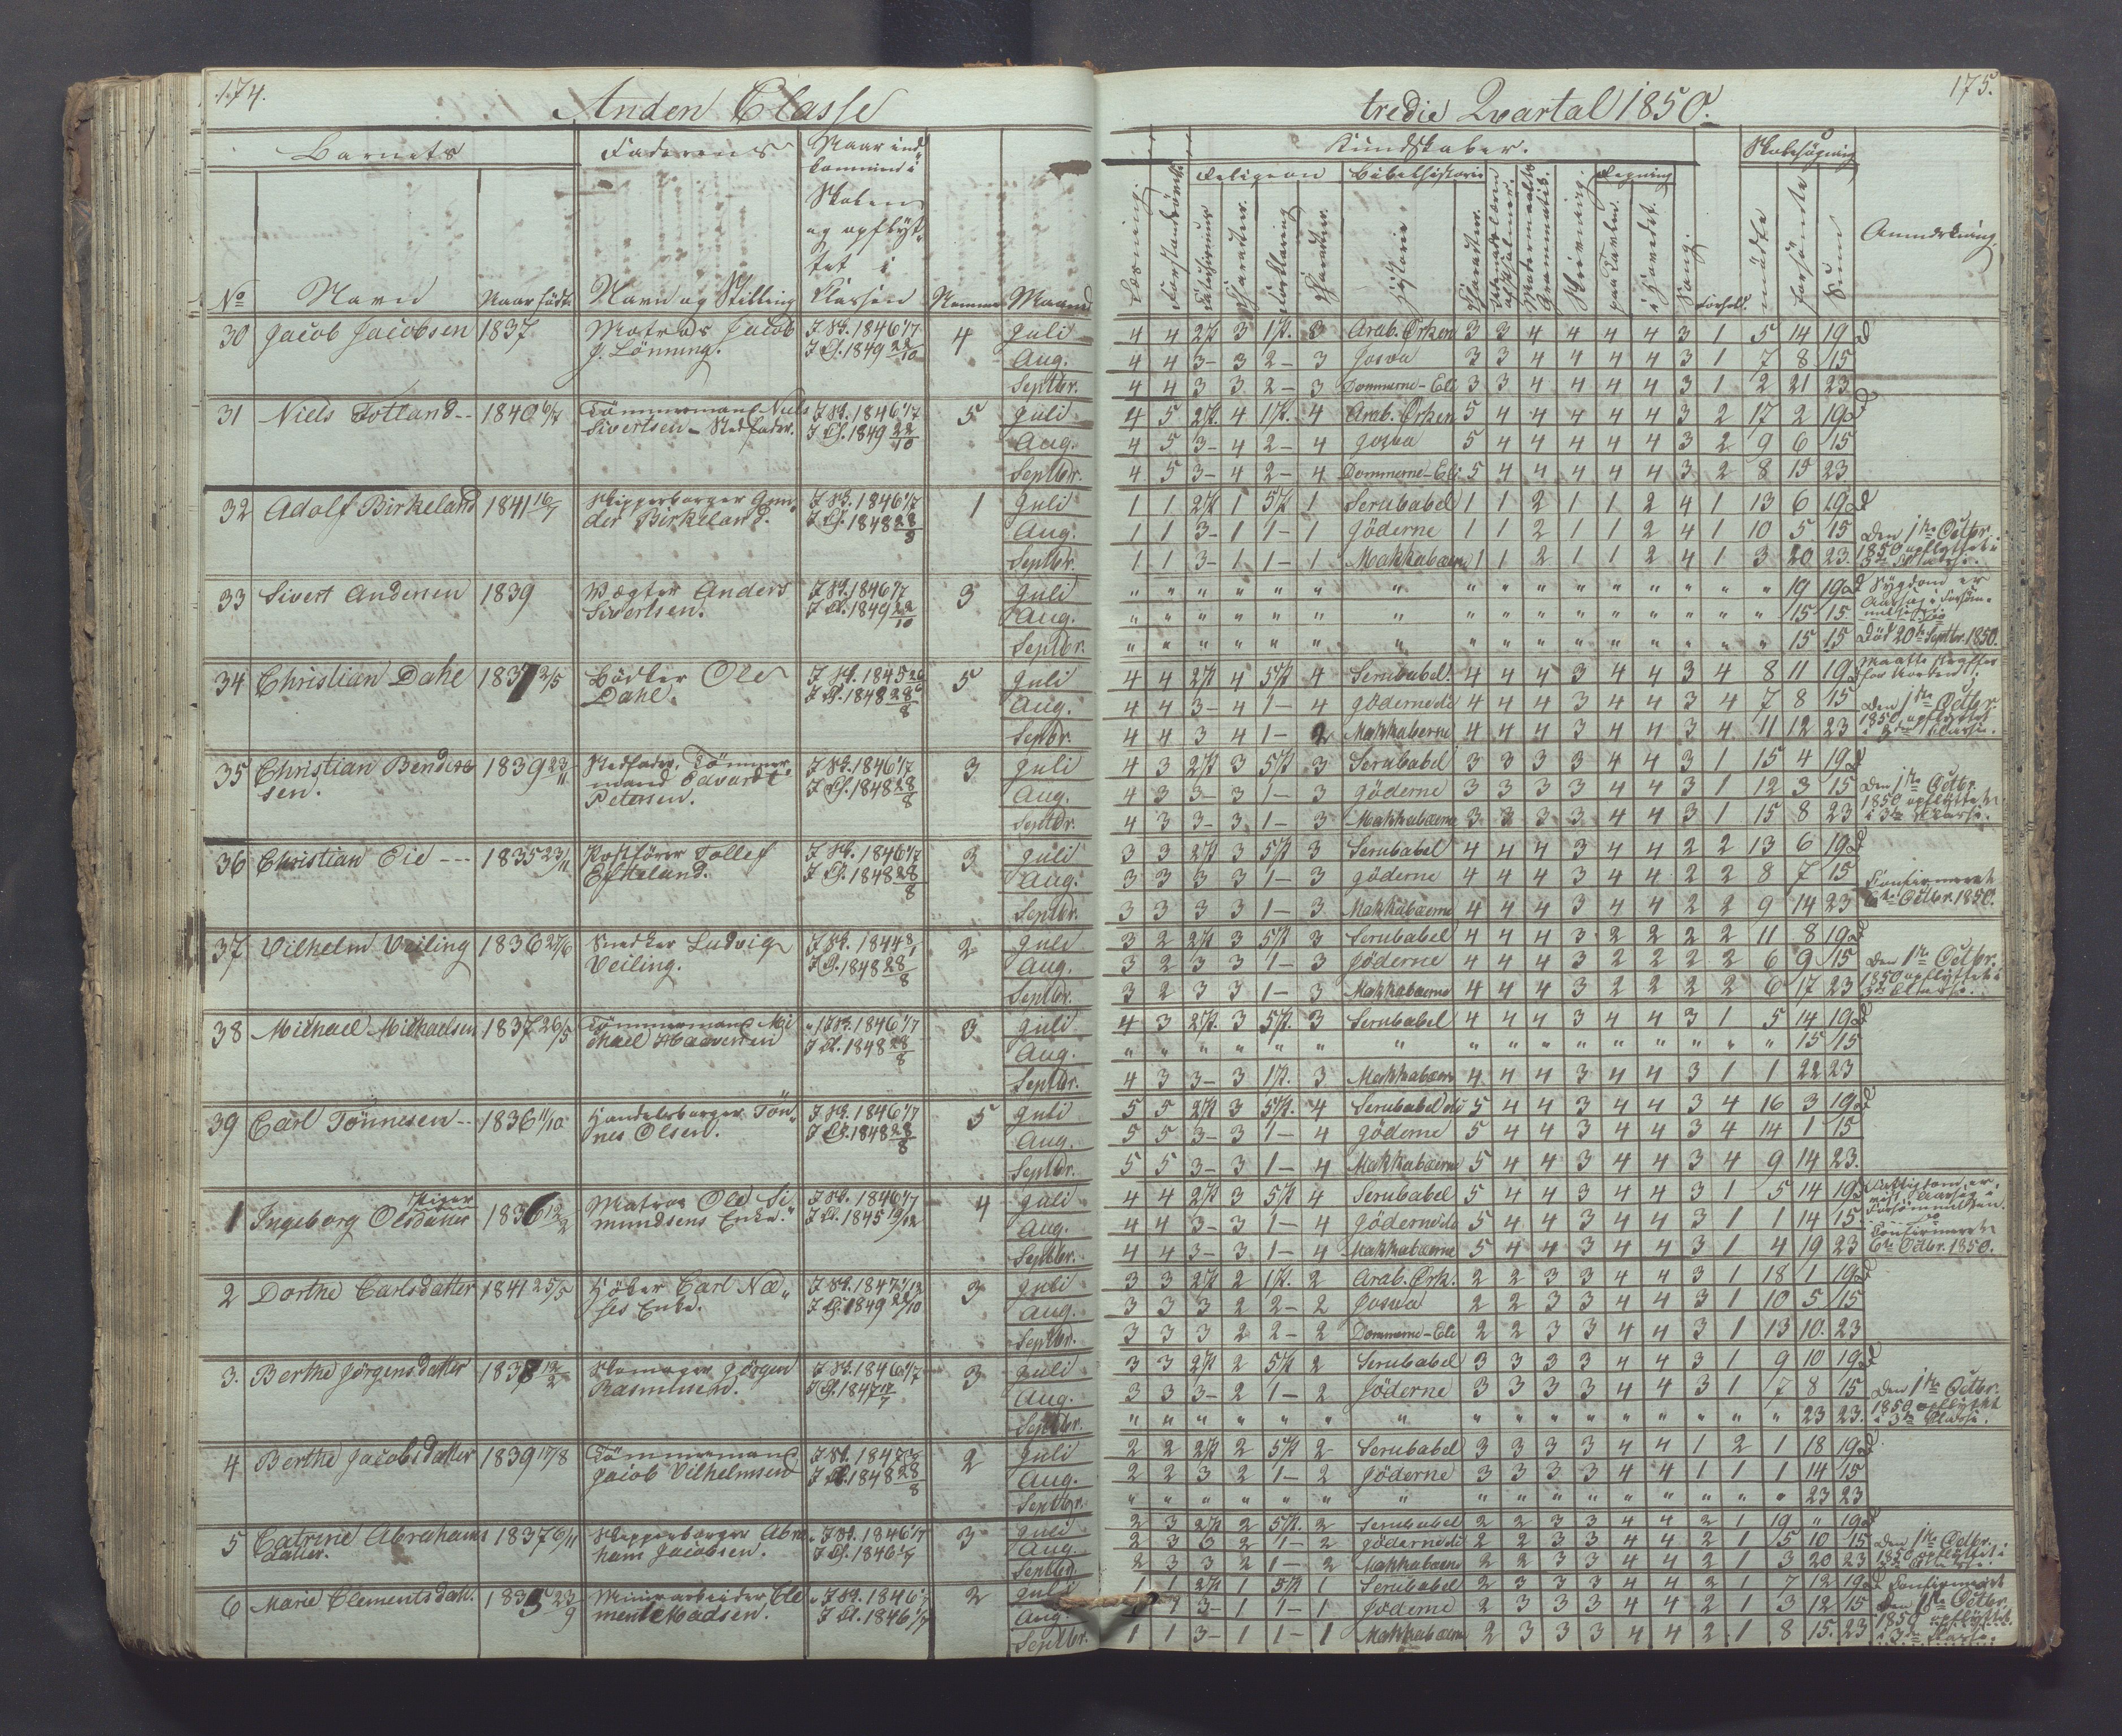 174.
Anden Classe
Barnets
Faderens
Naar ind-
kommen i
Skolen
og opflyt-
tet i
Classen
No
Navn
Naar født
Navn og Stilling
Nummer
Maaned
30 Jacob Jacobsen 1837
Matros Jacob
J. Lönning.
I Sk. 1846 1/7
I Cl. 1849 22/10
4
Juli
Aug.
Septbr.
31 Niels Totland 1840 6/7
Tömmermand Niels
Sivertsen - Stedfader.
I Sk. 1846 1/7
I Cl. 1849 22/10
5
Juli
Aug.
Septbr.
32 Adolf Birkeland 1841 16/7
Skipperborger Gun-
der Birkeland.
I Sk. 1846 1/7
I Cl. 1848 28/8
1
Juli
Aug.
Septbr.
33 Sivert Andersen 1839
Vægter Anders
Sivertsen.
I Sk. 1846 1/7
I Cl. 1849 22/10
3
Juli
Aug.
Septbr.
34 Christian Dahl 1837 3/5
Bödker Ole
Dahl.
I Sk. 1845
I Cl. 1848 28/8
5
Juli
Aug.
Sepbr.
35 Christian Bendix-
sen. 1839 23/11
Stedfader, Tömmer-
mand Edvardt
Petersen.
I Sk. 1846 1/7
I Cl. 1848 28/8
3
Juli
Aug.
Septbr.
36 Christian Eie 1835 23/11
Postförer Tollef
Efteland.
I Sk. 1846 1/7
I Cl. 1848 28/8
3
Juli
Aug.
Septbr.
37 Vilhelm Veiling 1836 27/6
Snedker Ludvig
Veiling.
I Sk. 1844 8/1
I Cl. 1848 28/8
2
Juli
Aug.
Septbr.
38 Michael Michaelsen 1837 26/5
Tömmermand Mi-
chael Haaversen
I Sk. 1846 1/7
I Cl. 1848 28/8
3
Juli
Aug.
Septbr.
39 Carl Tönnesen 1836 11/10
Handelsborger Tön-
nes Olsen.
I Sk. 1846 1/7
I Cl. 1848 28/8
5
Juli
Aug.
Septbr.
Piger
1 Ingeborg Olsdatter 1836 12/2
Matros Ole Si-
mundsens Enke.
I Sk. 1846 1/7
I Cl. 1845 19/12
4
Juli
Aug.
Septbr.
2 Dorthe Carlsdatter 1841 25/5
Höker Carl Næ-
ses Enke.
I Sk. 1847 1/12
I Cl. 1849 22/10
3
Juli
Aug.
Septbr.
3. Berthe Jörgensdatter 1837 12/2
Skomager Jörgen
Rasmussen.
I Sk. 1846 1/7
I Cl. 1847 17/7
3
Juli
Aug.
Septbr.
4 Berthe Jacobsdatter 1839 17/8
Tömmermand
Jacob Vilhelmsen
I Sk. 1847
I Cl. 1848 28/8
2
Juli
Aug.
Septbr.
5 Catrine Abrahams
datter. 1837 6/11
Skipperborger Abra-
ham Jacobsen.
I Sk. 1846 1/7
I Cl. 1846 1/7
3
Juli
Aug.
Septbr.
6 Marie Clementsdatt. 1835 23/9
Minerarbeider Cle-
ment Madsen.
I Sk. 1846 1/7
I Cl. 1846 1/7
2
Juli
Aug.
Septbr.
175.
tredie Qvartal 1850.
Kundskaber.
Skolesøgning
Religion
Bibelhistorie
Regning
Læsning.
Charakter.
Forklaring
Charakter.
Historie
Charakter.
Modersmaalets
Grammatik.
Skrivning.
paa Tavlen.
i Hovedet.
Sang.
Forhold.
mødte
forsømte
Sum
Anmærkning.
4 4 2 P 3 1 P. 3 Arab. Örken 3 3 4 4 4 4 3 1 5 14 19
4 4 3- 3 2- 3 Josva 3 3 4 4 4 4 3 1 7 8 15
4 4 3 3 2- 3 Dommerne-Eli 3 3 4 4 4 4 3 1 2 21 23
4 5 2 P. 4 1 P. 4 Arab. Örken 5 4 4 4 4 4 3 2 17 2 19
4 5 3- 4 2- 4 Josva 5 4 4 4 4 4 3 2 9 6 15
4 5 3- 4 2- 4 Dommerne-Eli 5 4 4 4 4 4 3 2 8 15 23
1 1 2 P 1 5 P 1 Serubabel 1 1 2 1 1 2 4 1 13 6 19
1 1 3- 1 1- 1 Jöderne 1 1 2 1 1 2 4 1 10 5 15
1 1 3- 1 1- 1 Makkabæerne 1 1 2 1 1 2 4 1 3 20 23
Den 1te Octbr.
1850 opflyttet i
3die Classe.
" " " " " " " " " " " " " " " " 19 19
" " " " " " " " " " " " " " " " 15 15
" " " " " " " " " " " " " " " " 15 15
Sygdom er
Aarsag i Forsöm-
melsen.
Död 20de Septbr. 1850.
4 4 2 P 4 5 P 4 Serubabel. 4 4 4 3 4 4 3 4 8 11 19
4 4 3- 4 1- 4 Jöderne 4 4 4 3 4 4 3 4 7 8 15
4 4 3 4 1- 2 Makkabæerne 4 4 4 3 4 4 3 4 11 12 23
Den 1te Octbr.
1850 opflyttet
i 3die Classe.
4 3 2 P 3 5 P 3 Serubabel 3 3 3 3 4 4 3 1 15 4 19
4 3 3- 3 1- 3 Jöderne 3 3 3 3 4 4 3 1 12 3 15
4 3 3- 3 1- 3 Makkabæerne 3 3 3 3 4 4 3 1 15 8 23
Den 1te Octbr.
1850 opflyttet
i 3die Classe.
3 3 2 P 3 5 P 3 Serubabel 4 4 4 3 4 4 2 2 13 6 19
3 3 3 3 1- 3 Jöderne 4 4 4 3 4 4 2 2 8 7 15
3 3 3 3 1- 3 Makkabæerne 4 4 4 3 4 4 2 2 9 14 23
Confirmeret
6te Octbr. 1850.
3 2 2 P 3 5 P 3 Serubabel 4 4 4 3 2 2 2 2 11 8 19
3 2 3 3 1- 3 Jöderne 4 4 4 3 2 2 2 2 6 9 15
3 2 3 3 1- 3 Makkabæerne 4 4 4 3 2 2 2 2 6 17 23
Den 1te Octbr.
1850 opflyttet i
Classe.
4 3 2 P. 3 5 P. 3 Serubabel 4 4 4 3 4 4 3 1 5 14 19
" " " " " " " " " " " " " " " " 15 15
4 3 3- 3 1 P. 3 Makkabæerne 4 4 4 3 4 4 3 1 1 22 23
5 5 2 P 3 5 P. 4 Serubabel 5 4 4 3 4 4 3 4 16 3 19
5 5 3- 3 1- 4 Jöderne 5 4 4 3 4 4 3 4 14 1 15
5 5 3- 3 1- 4 Makkabæerne 5 4 4 3 4 4 3 4 9 14 23.
4 4 2 P 3 5 P 4 Serubabel 5 4 4 3 4 4 3 1 5 14 19
4 4 3- 3 1- 4 Jöderne 5 4 4 3 4 4 3 1 1 14 15
4 4 3- 3 1- 4 Makkabæerne 5 4 4 3 4 4 3 1 4 19 23
Fattigdom er
vist Aarsag i
Forsömmelsen.
Confirmeret
6te Octbr. 1850.
3 3 2 P 2 1 P. 2 Arab. Örk. 2 2 3 3 4 4 3 1 18 1 19
3 3 3 2 2- 2 Josva 2 2 3 3 4 4 3 1 10 5 15
3 3 3 2 2- 2 Dommerne-Eli 2 2 3 3 4 4 3 1 13 10. 23
3 3 2 P 2 5 P 2 Serubabel 3 3 3 3 4 4 3 1 9 10 19
3 3 3- 2 1- 2 Jöderne 3 3 3 3 4 4 3 1 7 8 15
" " " " " " " " " " " " " " " " 23 23.
Den 1te Octbr.
1850 opflyttet
i 3die Classe.
2 2 2 P 2 5 P 2 Serubabel 3 3 3 3 4 4 1 2 1 18 19
2 2 3 2 1- 2 Jöderne 3 3 3 3 4 4 1 1 1 14 15
" " " " " " " " " " " " " " " " 23 23
2 3 2 P 2 5 P. 2 Serubabel 2 2 3 3 4 4 2 1 19 " 19
2 3 3 2 1- 2 Jöderne 2 2 3 3 4 4 2 1 5 10 15
2 3 3 2 1- 2 Makkabæerne 2 2 3 3 4 4 2 1 3 20 23
Den 1te Octbr.
1850 opflyttet i
1 1 2 P 1 5 P 1 Serubabel 2 3 3 3 4 4 2 1 7 12 19
1 1 3- 1 1- 1 Jöderne 2 3 3 3 4 4 2 1 3 12 15
1 1 3- 1 1- 1 Makkabæerne 2 3 3 3 4 4 2 1 8 15. 23
Confirmeret
Den 1te Octbr.
1850 opflyttet
i 3die Classe.